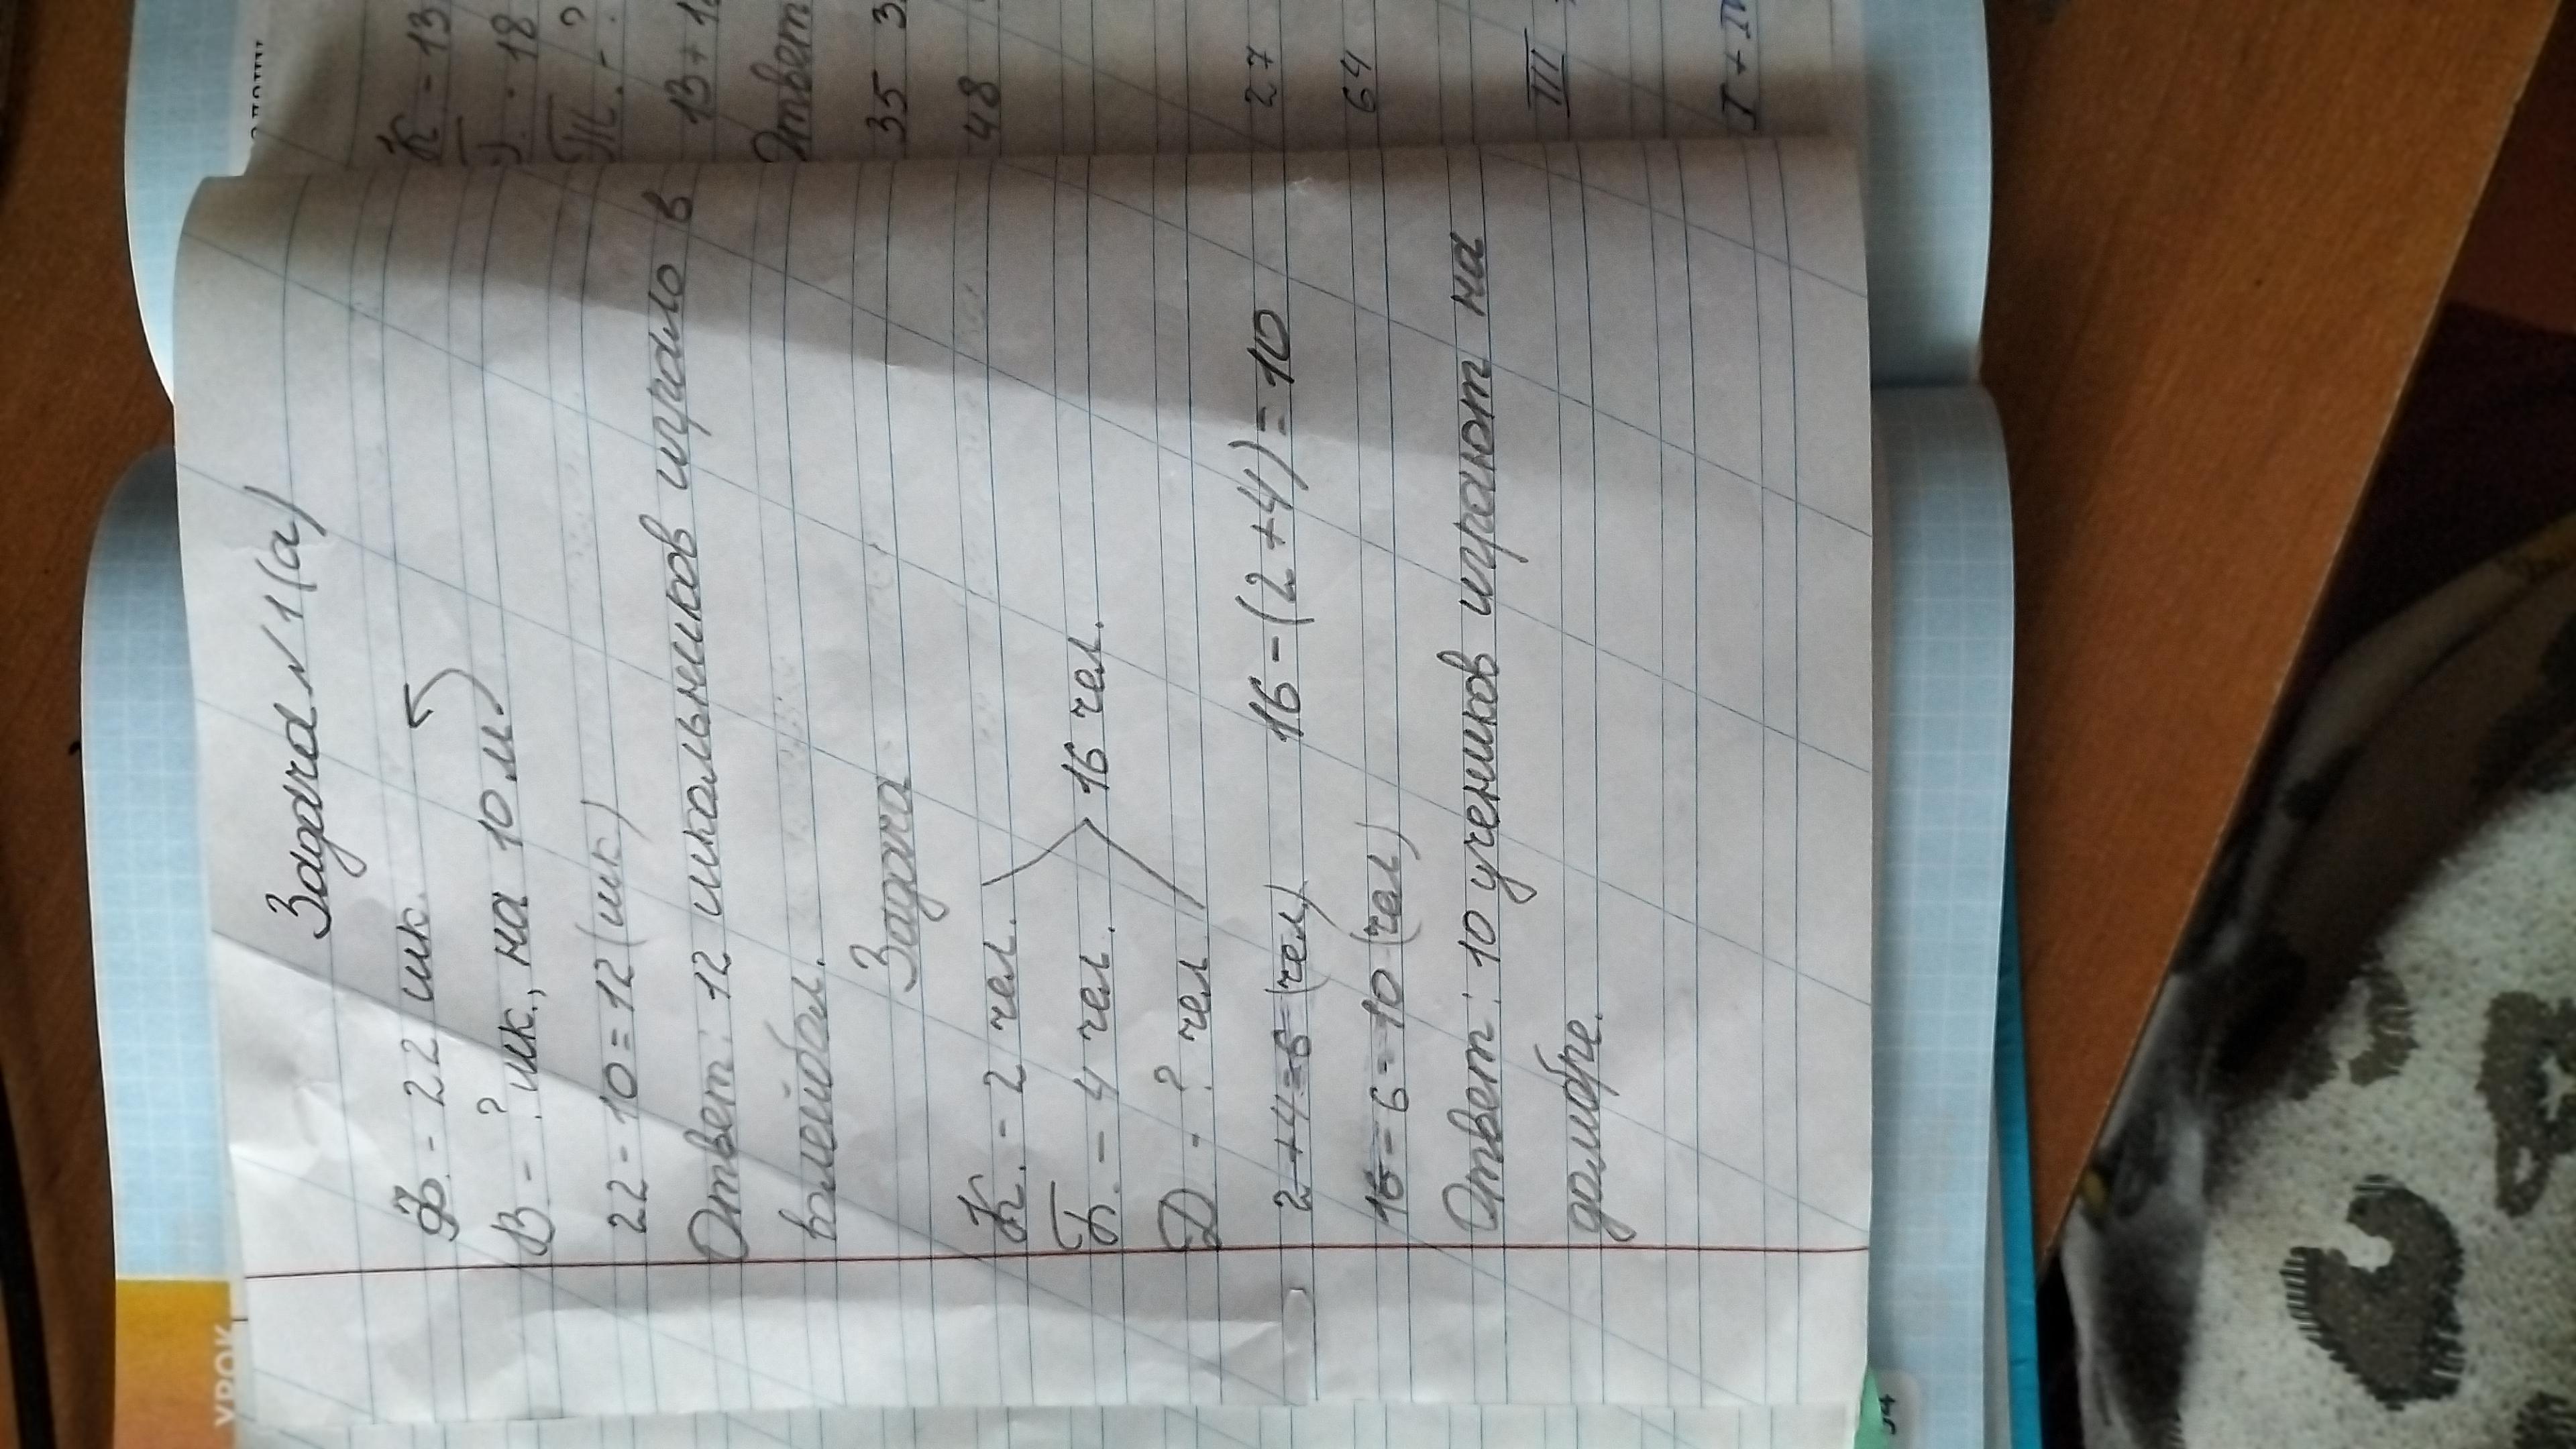 Задача №1(а)
Ф. - 22 шк.
В - ? шк., на 10 м)
22 - 10 = 12 (шк)
Ответ: 12 школьников играло в
волейбол.
Задача
К. - 2 чел.
Б. - 4 чел. 16 чел.
Д - ? чел
2 + 4 = 6 (чел) 16 - (2 + 4) = 10
16 - 6 = 10 (чел)
Ответ: 10 учеников играют на
домбре.
К - 13
18
Ж. - ?
13 + 1
Ответ
35 3
48
27
64
III
I +
УРОК